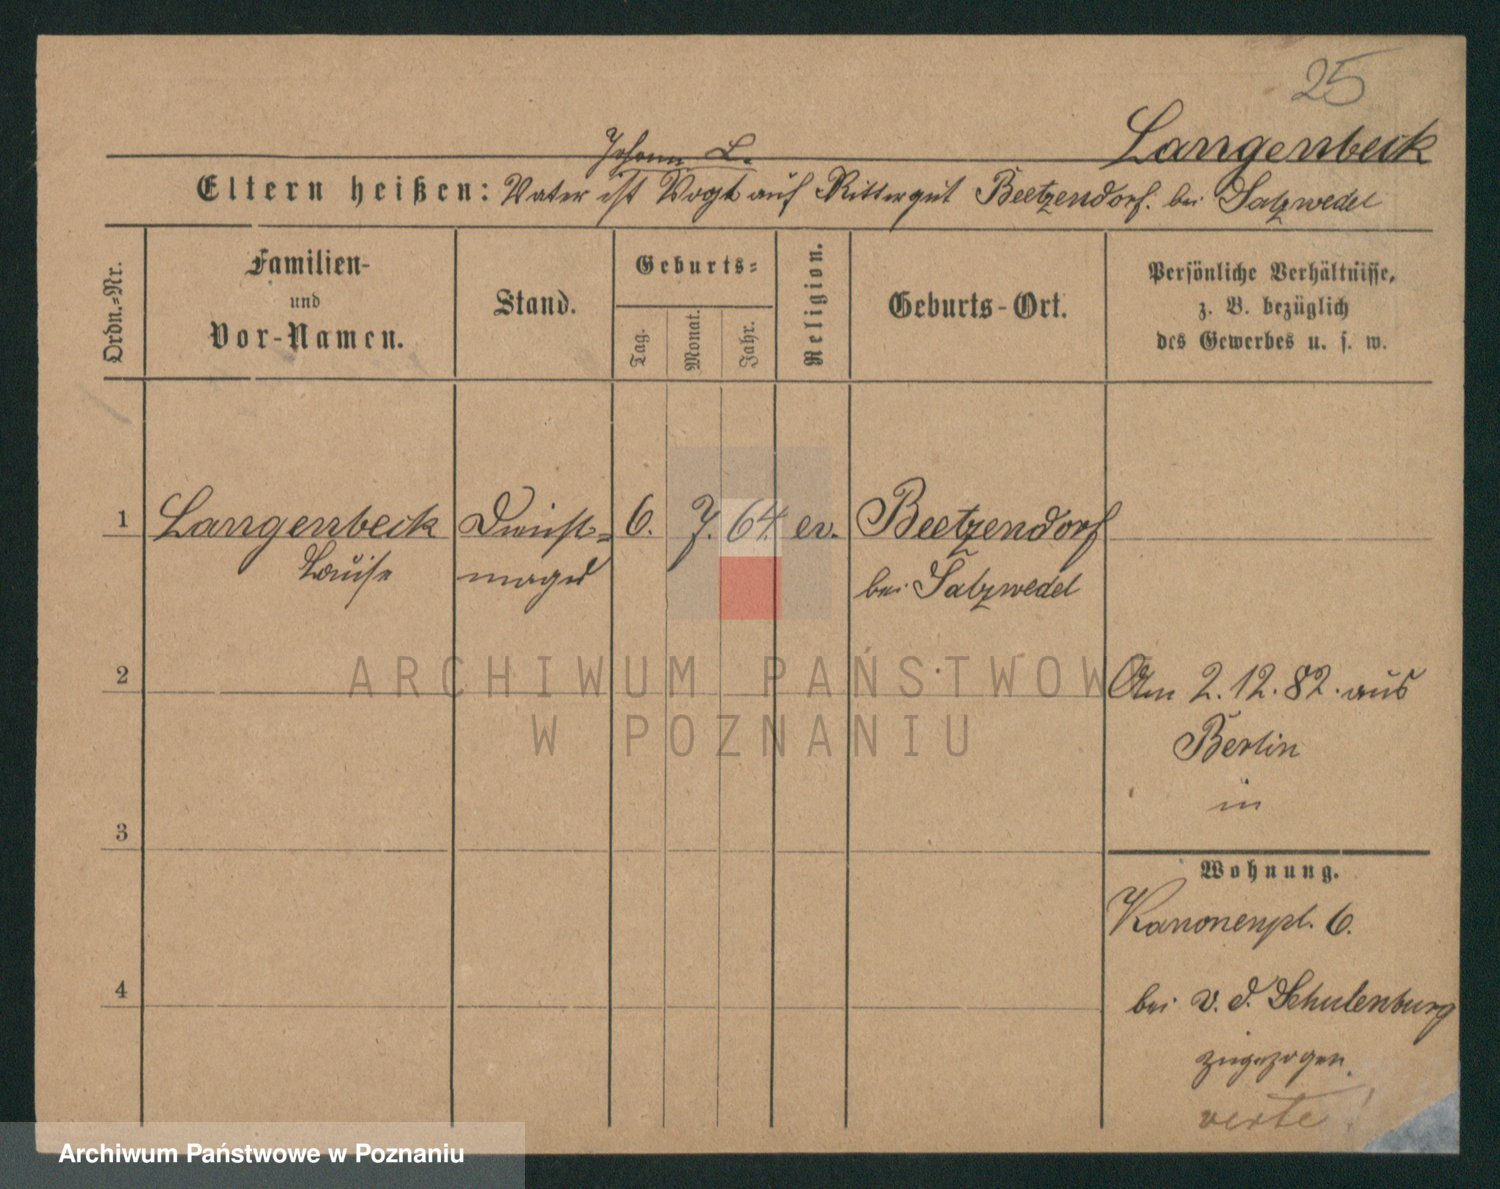 25
Langenbeck
Johann L.
Eltern heißen: Vater ist Vogt auf Rittergut Beetzendorf. bei Salzwedel
Ordn.=Nr.
Familien-
und
Vor-Namen.
Stand.
Geburts=
Tag.
Monat.
Jahr.
Religion.
Geburts-Ort.
Persönliche Verhältnisse,
z. B. bezüglich
des Gewerbes u. s. w.
1 Langenbeck Dienst= 6. 7. 64. ev. Beetzendorf
Louise magd bei Salzwedel
2
Am 2.12.82. aus
Berlin
in
3
Wohnung.
Kanonenpl. 6.
4
bei v. d. Schulenburg
zugezogen.
verte!
ARCHIWUM PAŃSTWOW
W POZNANIU
Archiwum Państwowe w Poznaniu